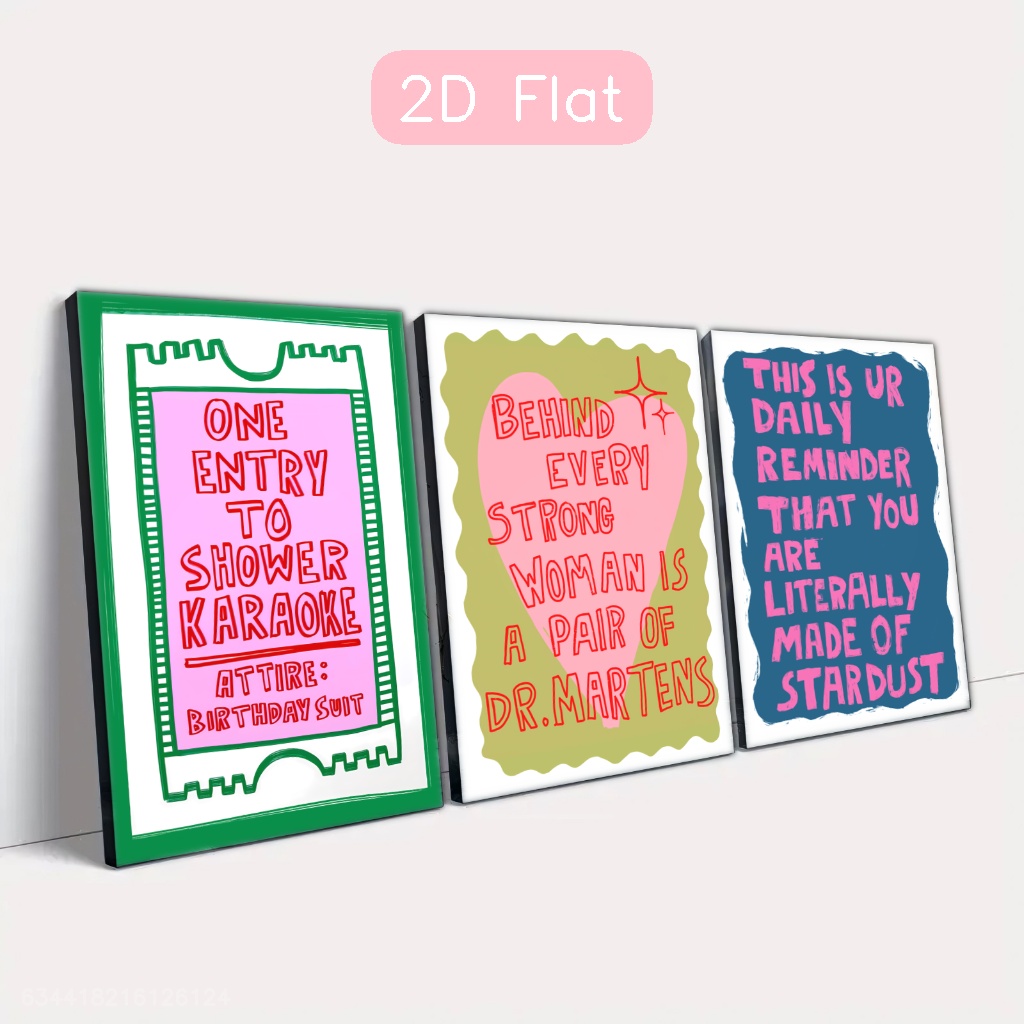 2D Flat
ONE
ENTRY
TO
SHOWER
KARAOKE
ATTIRE:
BIRTHDAY SUIT
BEHIND
EVERY
STRONG
WOMAN IS
A PAIR OF
DR. MARTENS
THIS IS UR
DAILY
REMINDER
THAT YOU
ARE
LITERALLY
MADE OF
STARDUST